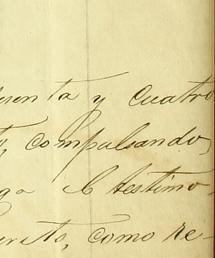 renta y cuatro
compulsando,
el testimo-
como re-